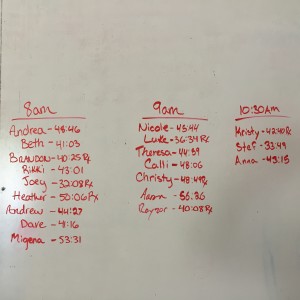 8am
Andrea - 48:46
Beth - 41:03
BRANDON - 40:25 Rx
Rikki - 43:01
Joey - 32:08 Rx
Heather - 50:06 Rx
Andrew - 44:27
Dave - 41:16
Migena - 53:31
9am
Nicole - 45:44
Luke - 36:34 Rx
Theresa - 44:59
Calli - 48:06
Christy - 48:49 Rx
Aaron - 56:36
- 40:08 Rx
10:30AM
Kristy - 42:40 Rx
Stef - 33:49
Anna - 49:15